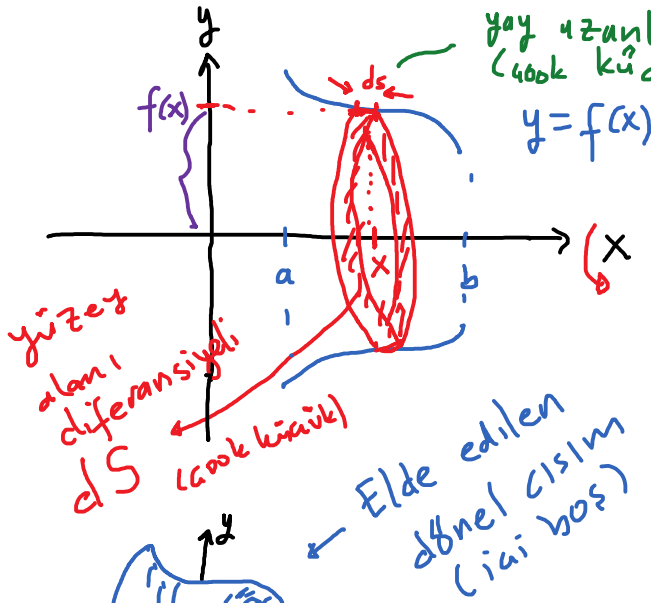 y
yay uzanl
(çook küç
ds
f(x)
y = f(x)
x
a
x
b
yüzey
alanı
diferansiyeli
dS
(çook küçük)
Elde edilen
dönel cisim
(içi boş)
y